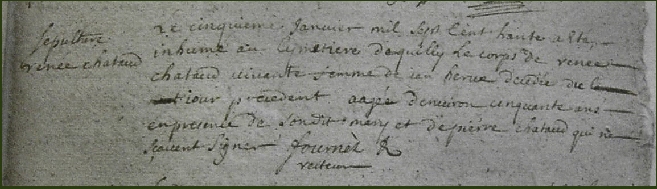 sepulture
renee chataud
Le cinquieme Janvier mil sept cent trante a été
inhumé au cimetiere de quilly le corps de renee
chataud vivante femme de jan herve decedée du
jour precedent aagée denviron cinquante ans
en presence de son dit mary et de pierre chataud qui ne
scavent signer fournet R
recteur